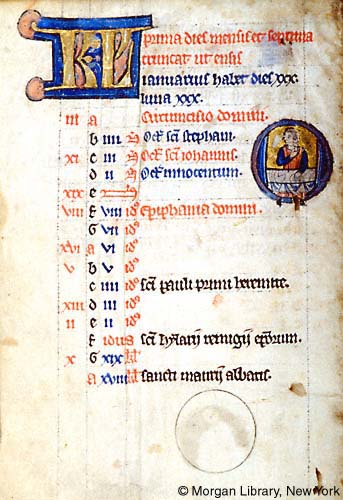 KL prima dies mensis et septima
truncat ut ensis
ianuarius habet dies xxxi
luna xxx.
iii a Circuncisio domini.
b iiii N Oct sci stephani.
xi c iii N Oct sci iohannis.
d ii N Oct innocentum.
xix e N
viii f viii id Epiphania domini.
G vii id
xvi a vi id
v b v id
c iiii id sci pauli primi heremite.
xiii d iii id
ii e ii id
f idus sci hylarij remigij
x G xix kl
a xviii kl sancti mauri abbatis.
© Morgan Library, New York